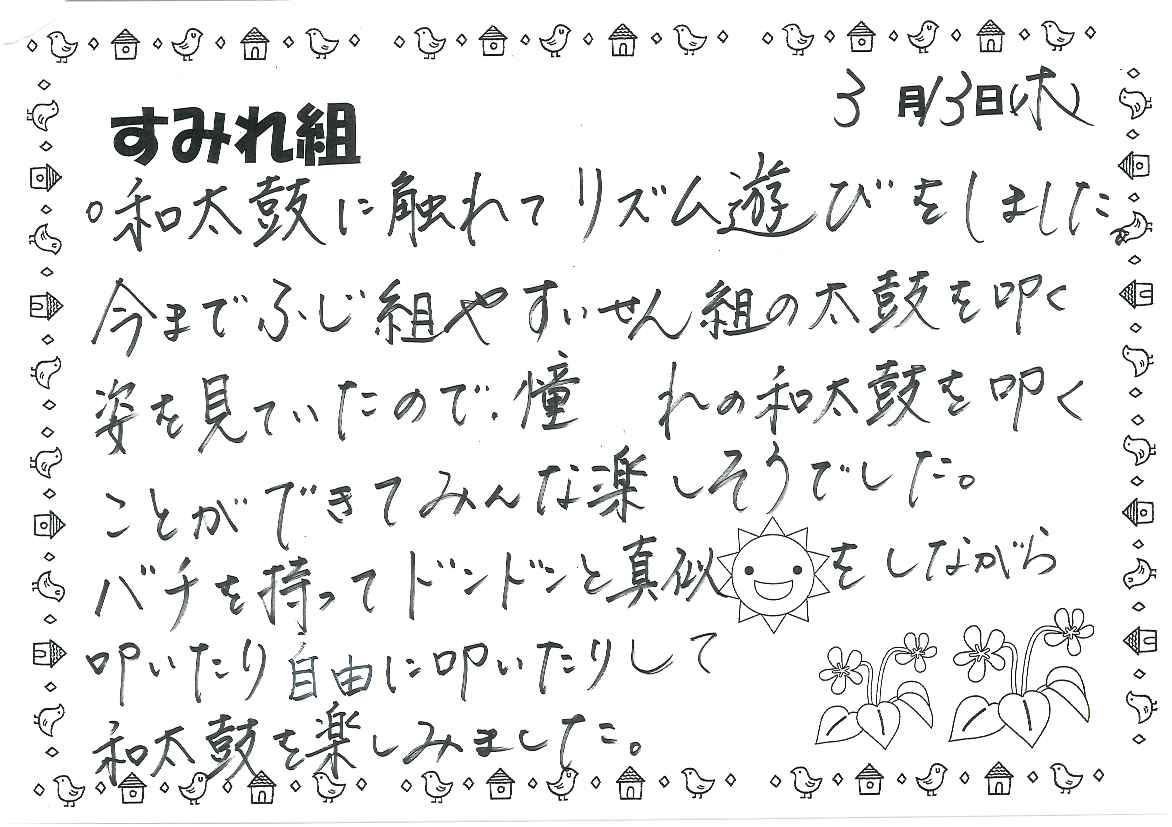 3月13日(木)
すみれ組
○和太鼓に触れてリズム遊びをしました。
今までふじ組やすいせん組の太鼓を叩く
姿を見ていたので、憧れの和太鼓を叩く
ことができてみんな楽しそうでした。
バチを持ってドンドンと真似をしながら
叩いたり自由に叩いたりして
和太鼓を楽しみました。